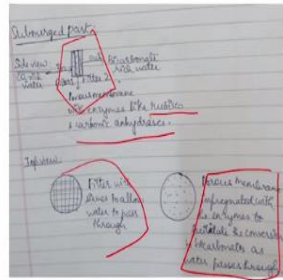 Submerged part:
Side view
CO2 rich water
out bicarbonate
rich water
Filter 2
Porous membrane
with enzymes like rubisco
& carbonic anhydrases.
Top view
Filter with
pores to allow
water to pass
through
Porous membrane
impregnated with
the enzymes to
facilitate the conversion
to bicarbonates as
water passes through